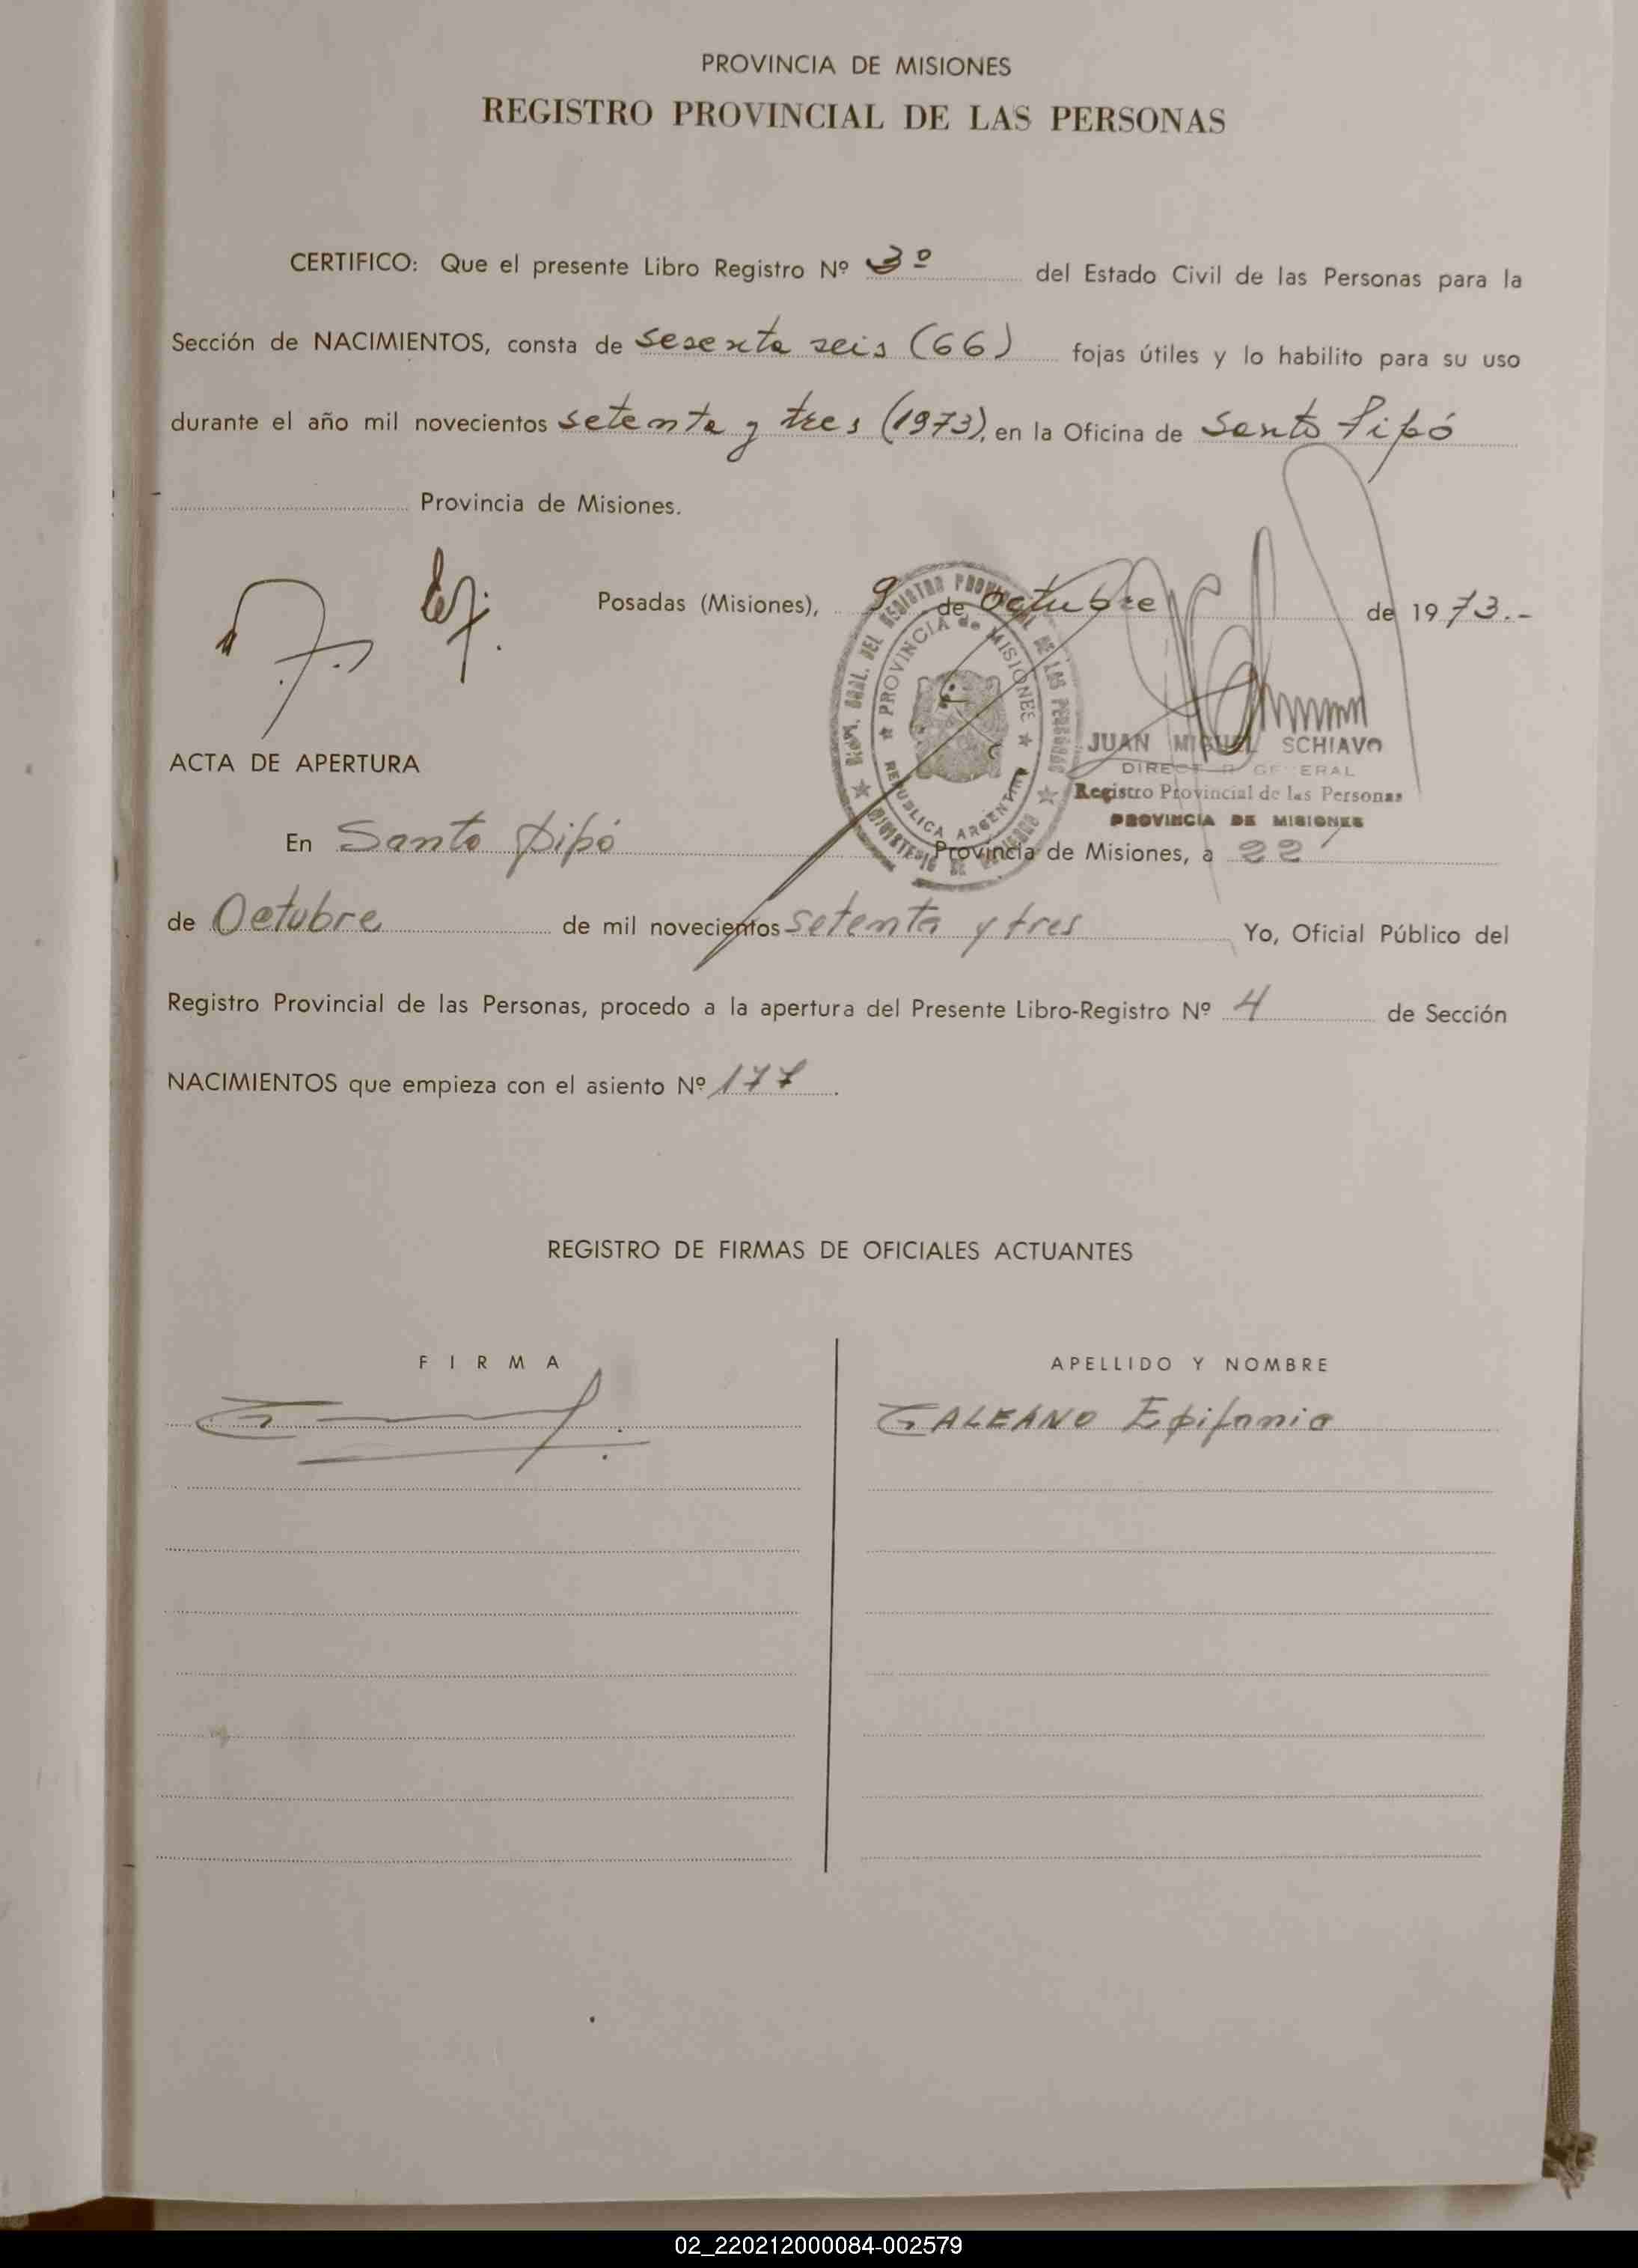 PROVINCIA DE MISIONES
REGISTRO PROVINCIAL DE LAS PERSONAS
CERTIFICO: Que el presente Libro Registro Nº 3º del Estado Civil de las Personas para la
Sección de NACIMIENTOS, consta de sesenta seis (66) fojas útiles y lo habilito para su uso
durante el año mil novecientos setenta y tres (1973), en la Oficina de Santo Pipó
Provincia de Misiones.
Posadas (Misiones), 9 de octubre de 1973.-
REGISTRO PROVINCIAL DE LAS PERSONAS
PROVINCIA de MISIONES
REPUBLICA ARGENTINA
JUAN MIGUEL SCHIAVO
DIRECTOR GENERAL
Registro Provincial de las Personas
PROVINCIA DE MISIONES
ACTA DE APERTURA
En Santo pipó Provincia de Misiones, a 22
de Octubre de mil novecientos setenta y tres Yo, Oficial Público del
Registro Provincial de las Personas, procedo a la apertura del Presente Libro-Registro Nº 4 de Sección
NACIMIENTOS que empieza con el asiento Nº 177.
REGISTRO DE FIRMAS DE OFICIALES ACTUANTES
FIRMA APELLIDO Y NOMBRE
GALEANO Epifanio
02_220212000084-002579